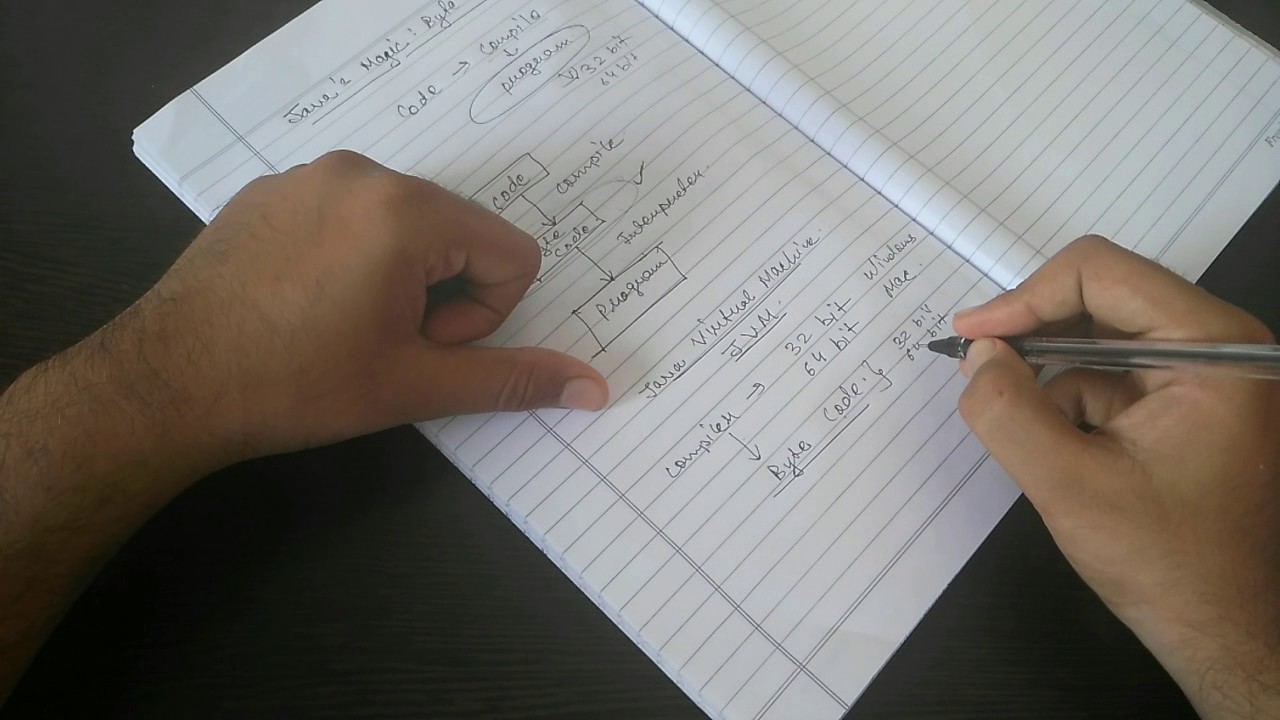 Java's Magic: Byte
Code → Compile
program
V 32 bit
64 bit
Code
compile
Byte
Code
Interpreter.
Program
Java Virtual Machine.
J.V.M.
compiler → 32 bit
64 bit
Windows
Mac.
Byte Code. } 32 bit
64 bit